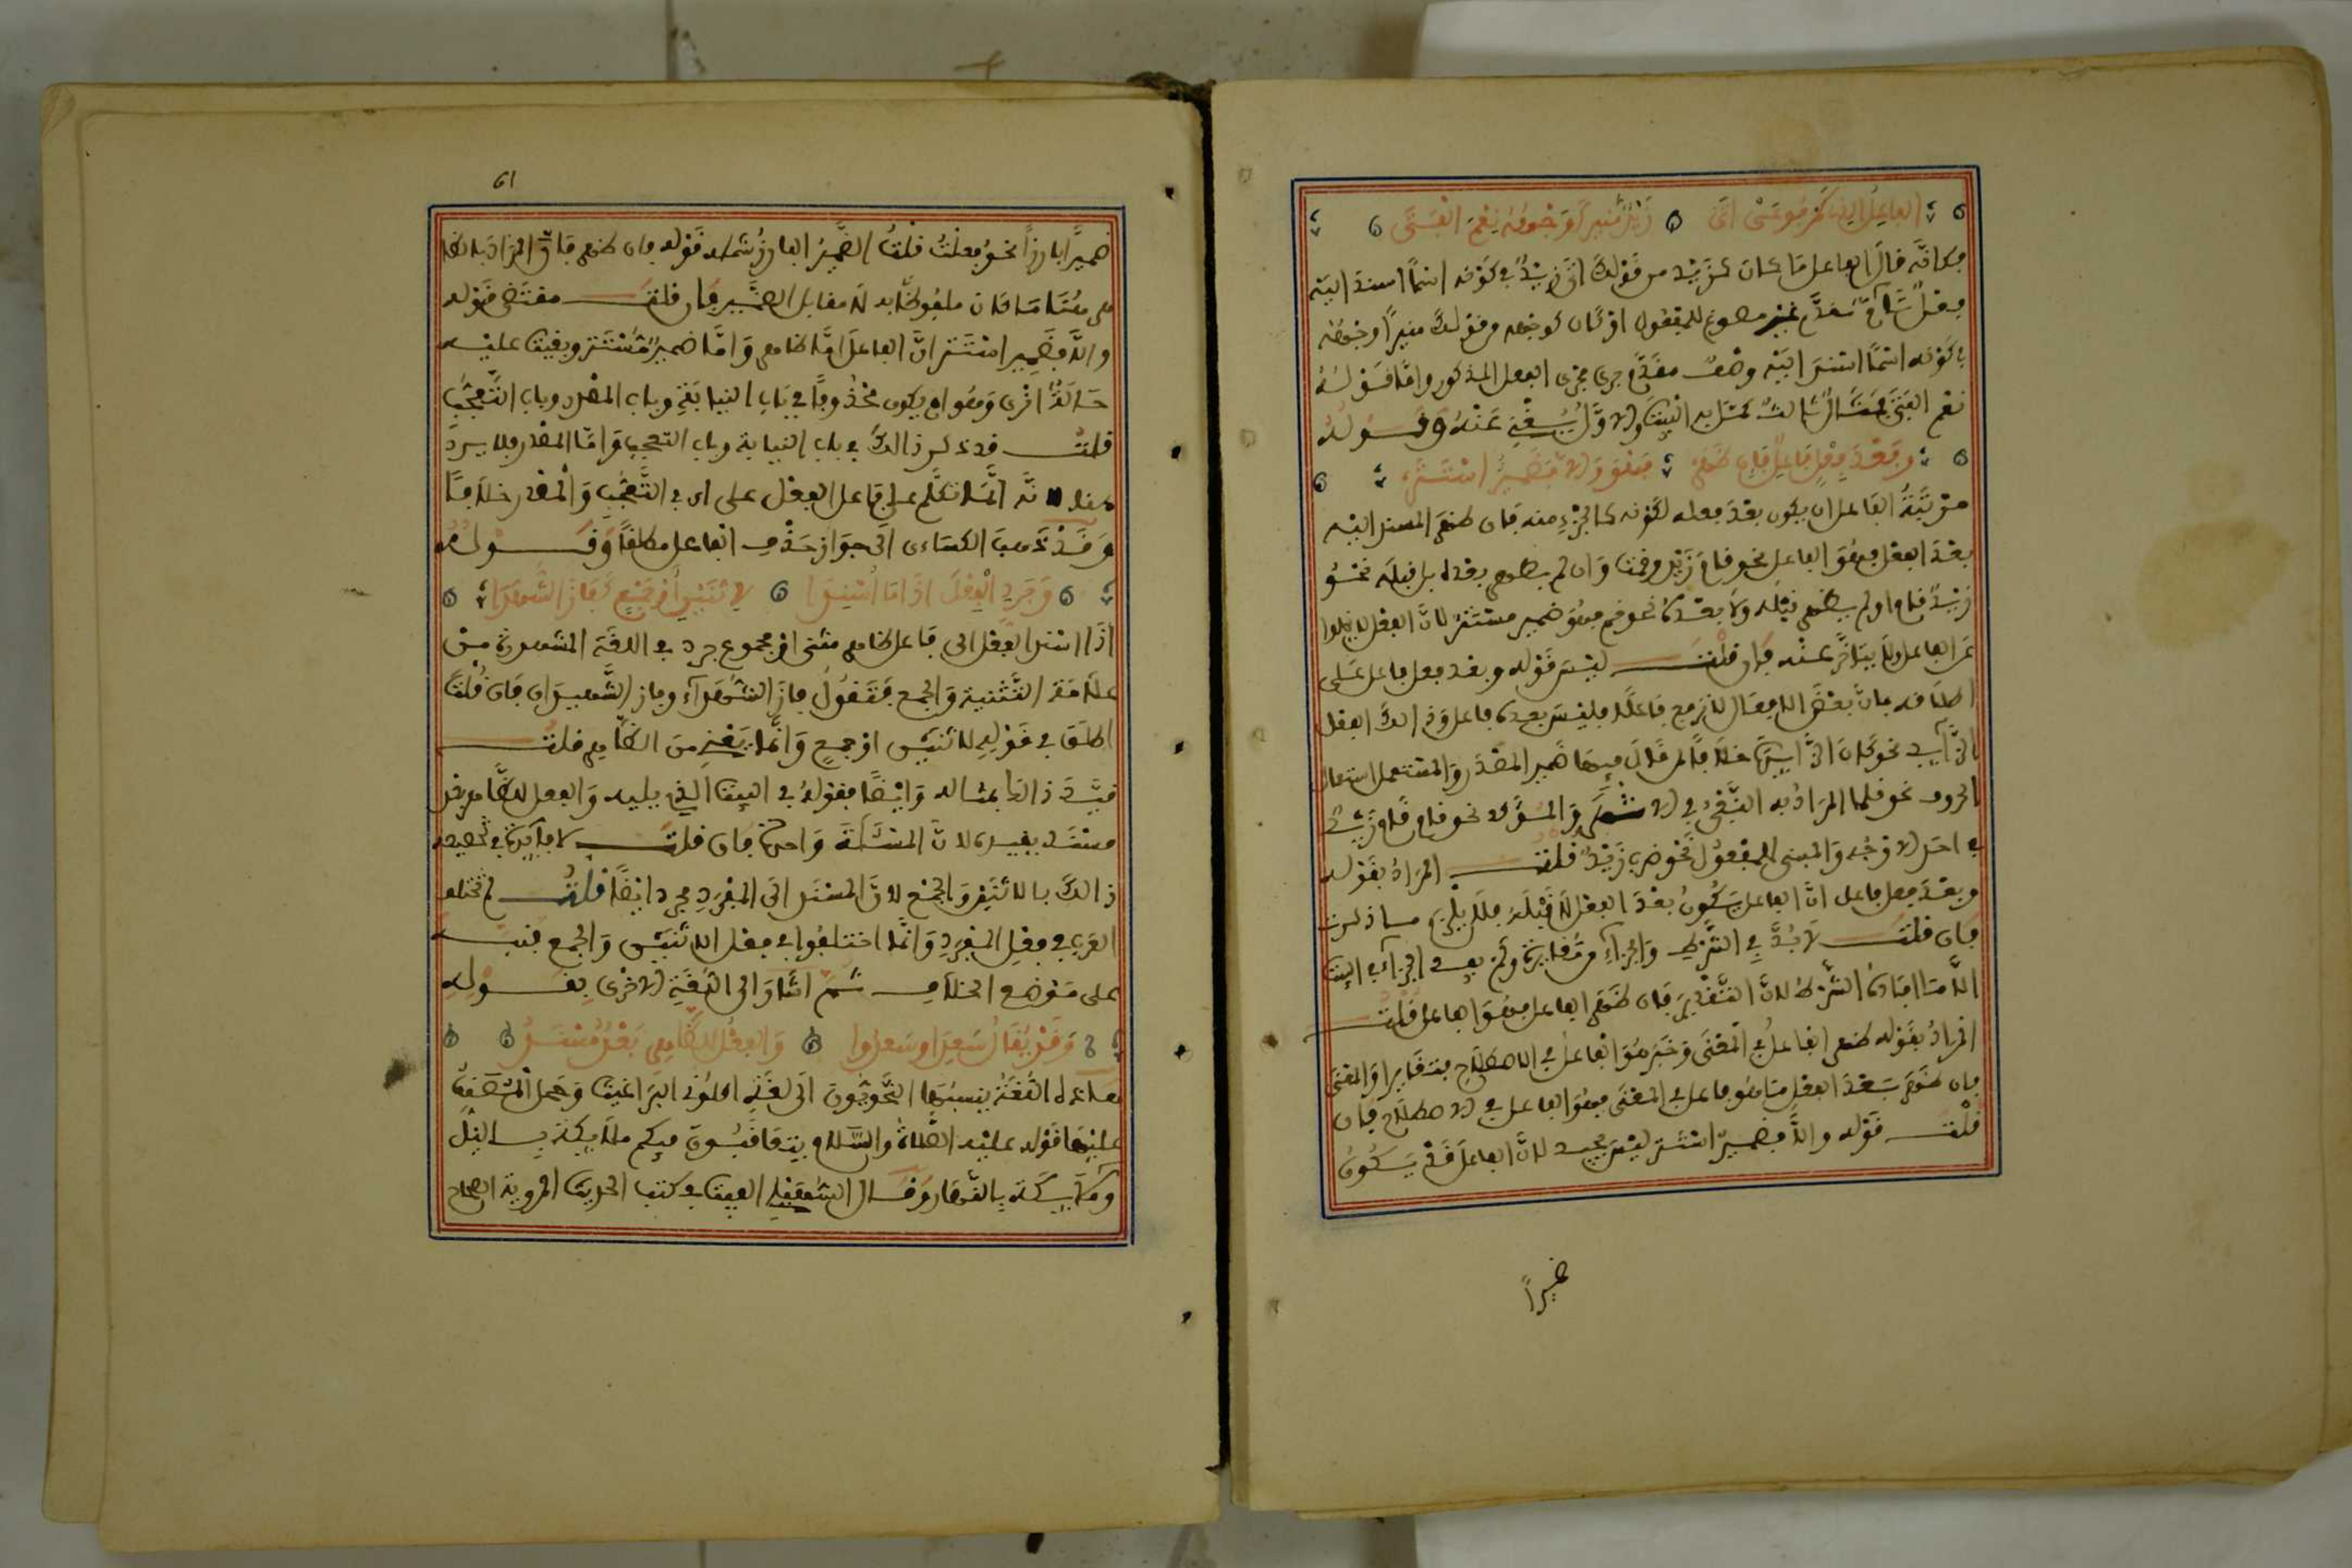 الفاعل الذي كمرفوعي اتى زيد منيرا وجهه نعم الفتى
فكانه قال الفاعل ما كان كزيد من قولك اتى زيد في كونه اسما اسند اليه
فعل تام مقدم غير مصوغ للمفعول او كان كوجهه من قولك منيرا وجهه
في كونه اسما اسند اليه وصف مقدم جرى مجرى الفعل المذكور واما قوله
نعم الفتى فمثال ثالث كمل به البيت والاول يغني عنه وقوله
وبعد فعل فاعل فان ظهر فهو والا فضمير استتر
مرتبة الفاعل ان يكون بعد فعله لكونه كالجزء منه فان ظهر المسند اليه
بعد الفعل فهو الفاعل نحو قام زيد وقمت وان لم يظهر بعده بل قبله نحو
زيد قام او لم يظهر قبله ولا بعده نحو قم فهو ضمير مستتر لان الفعل لا يخلوا
عن الفاعل ولا يتاخر عنه فان قلت ليس قوله وبعد فعل فاعل على
اطلاقه فان بعض الافعال لا يرفع فاعلا فليس بعده فاعل وذالك الفعل
الزائد نحو كان الزائدة خلافا لمن قال فيها ضمير المصدر والمستعمل استعمال
الحروف نحو قلما المراد به النفي في الاشهر والمؤكد نحو قام قام زيد
في احد الاوجه والمبني للمفعول نحو ضرب زيد قلت المراد بقوله
وبعد فعل فاعل ان الفاعل يكون بعد الفعل لا قبله فلا يلزم ما ذكرت
فان قلت لا بد في الشرط والجزاء من مغايرة ولم يفد الجزاء في البيت
الا ما افاده الشرط لان التقدير فان ظهر الفاعل فهو الفاعل قلت
المراد بقوله ظهر الفاعل في المعنى وخبر هو الفاعل في الاصطلاح فتغايرا والمعنى
فان ظهر بعد الفعل ما هو فاعل في المعنى فهو الفاعل في الاصطلاح فان
قلت قوله والا فضمير استتر ليس بجيد لان الفاعل قد يكون
ضميرا
61
ضميرا بارزا نحو فعلت قلت الضمير البارز شمله قوله فان ظهر فان المراد بالظاهر
هنا ما كان ملفوظا به لا مقابل الضمير فان قلت مقتضى قوله
والا فضمير استتر ان الفاعل اما ظاهر واما ضمير مستتر وبقيت عليه
حالة اخرى وهو ان يكون محذوفا في باب النيابة وباب المصدر وباب التعجب
قلت قد ذكر ذالك في باب النيابة وباب التعجب واما المصدر فلا يرد
لانه انما تكلم على فاعل الفعل على ان في التعجب والمصدر خلافا
وقد ذهب الكساءى الى جواز حذف الفاعل مطلقا وقوله
وجرد الفعل اذا ما اسندا لاثنين او جمع كفاز الشهدا
اذا اسند الفعل الى فاعل ظاهر مثنى او مجموع جرد في اللغة المشهورة من
علامة التثنية والجمع فتقول فاز الشهداء وفاز الشهيدان فان قلت
اطلق في قوله لاثنين او جمع وانما يعني من الظاهر قلت
قيد ذالك بمثاله وايضا فقوله في البيت الذي يليه والفعل للظاهر بعد
مسند يقيده لان المسئلة واحدة فان قلت لا فايدة في تخصيص
ذالك بالاثنين والجمع لان المسند الى المفرد يجرد ايضا قلت لم تختلف
العرب في فعل المفرد وانما اختلفوا في فعل الاثنين والجمع فنبه
على موضع الخلاف ثم اشار الى اللغة الاخرى بقوله
وقد يقال سعدا وسعدوا والفعل للظاهر بعد مسند
هذه اللغة ينسبها النحويون الى لغة اكلوني البراغيث وحمل المصنف
عليها قوله عليه الصلاة والسلام يتعاقبون فيكم ملايكة بالليل
وملايكة بالنهار وقال السهيلي الفيت في كتب الحديث المروية الصحاح